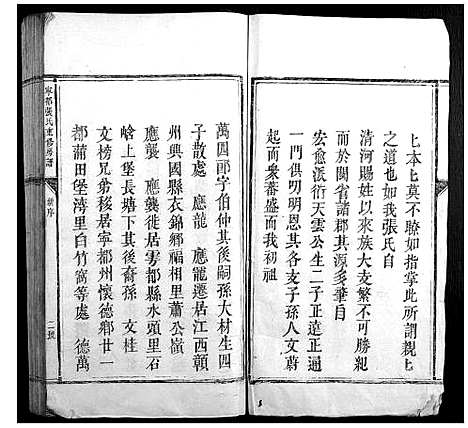 上本上莫不瞭如指掌此所謂親上
之道也如我張氏自
清河賜姓以來族大支繁不可勝紀
而於閩省諸郡其源多肇自
宏愈派衍天雲公生二子正遠正通
一門俱叨明恩其各支子孫人文蔚
起而衆蕃盛而我初祖
萬四郎字伯仲其後嗣孫大材生四
子散處 應龍 應寵遷居江西贛
州興國縣衣錦鄉福相里蕭公嶺
應襲 應襲徙居雩都縣水頭里石
崆上堡長塘下其後裔孫 文桂
文榜兄弟移居寧都州懷德鄉廿一
都蒲田堡灣里白竹窩等處 德萬
寧都張氏重修房譜
序
二號